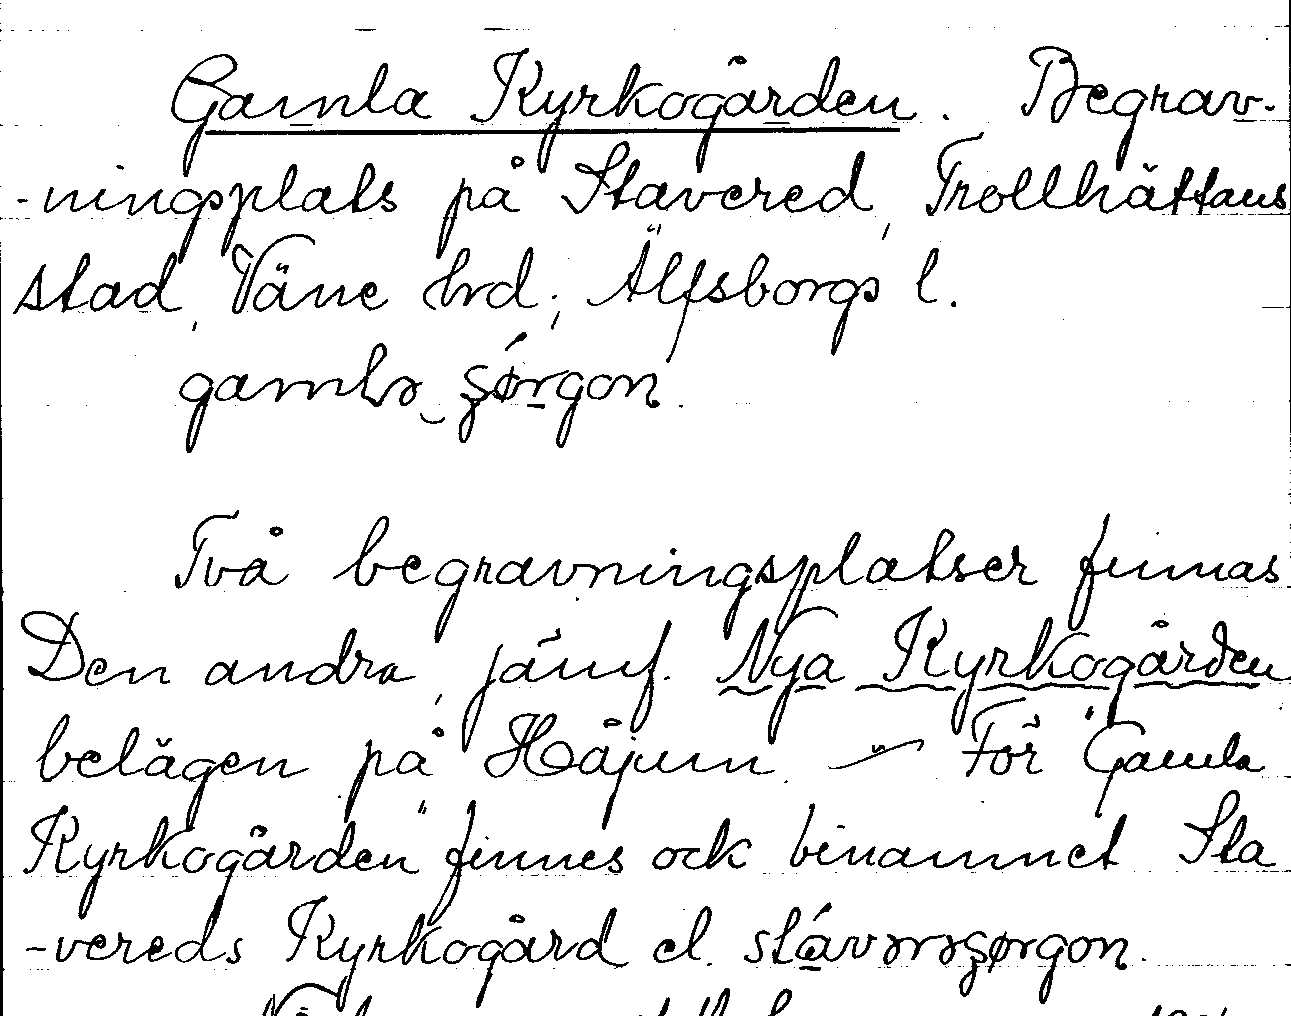 Gamla Kyrkogården. Begrav-
-ningsplats på Stavered, Trollhättans
stad, Väne hrd; Älfsborgs l.
gamlə ʂǿrgon.
Två begravningsplatser finnas
Den andra, jämf. Nya Kyrkogården
belägen på Håjum. — För "Gamla
Kyrkogården" finnes ock binamnet Sta
-vereds Kyrkogård el. stávərəʂørgon.